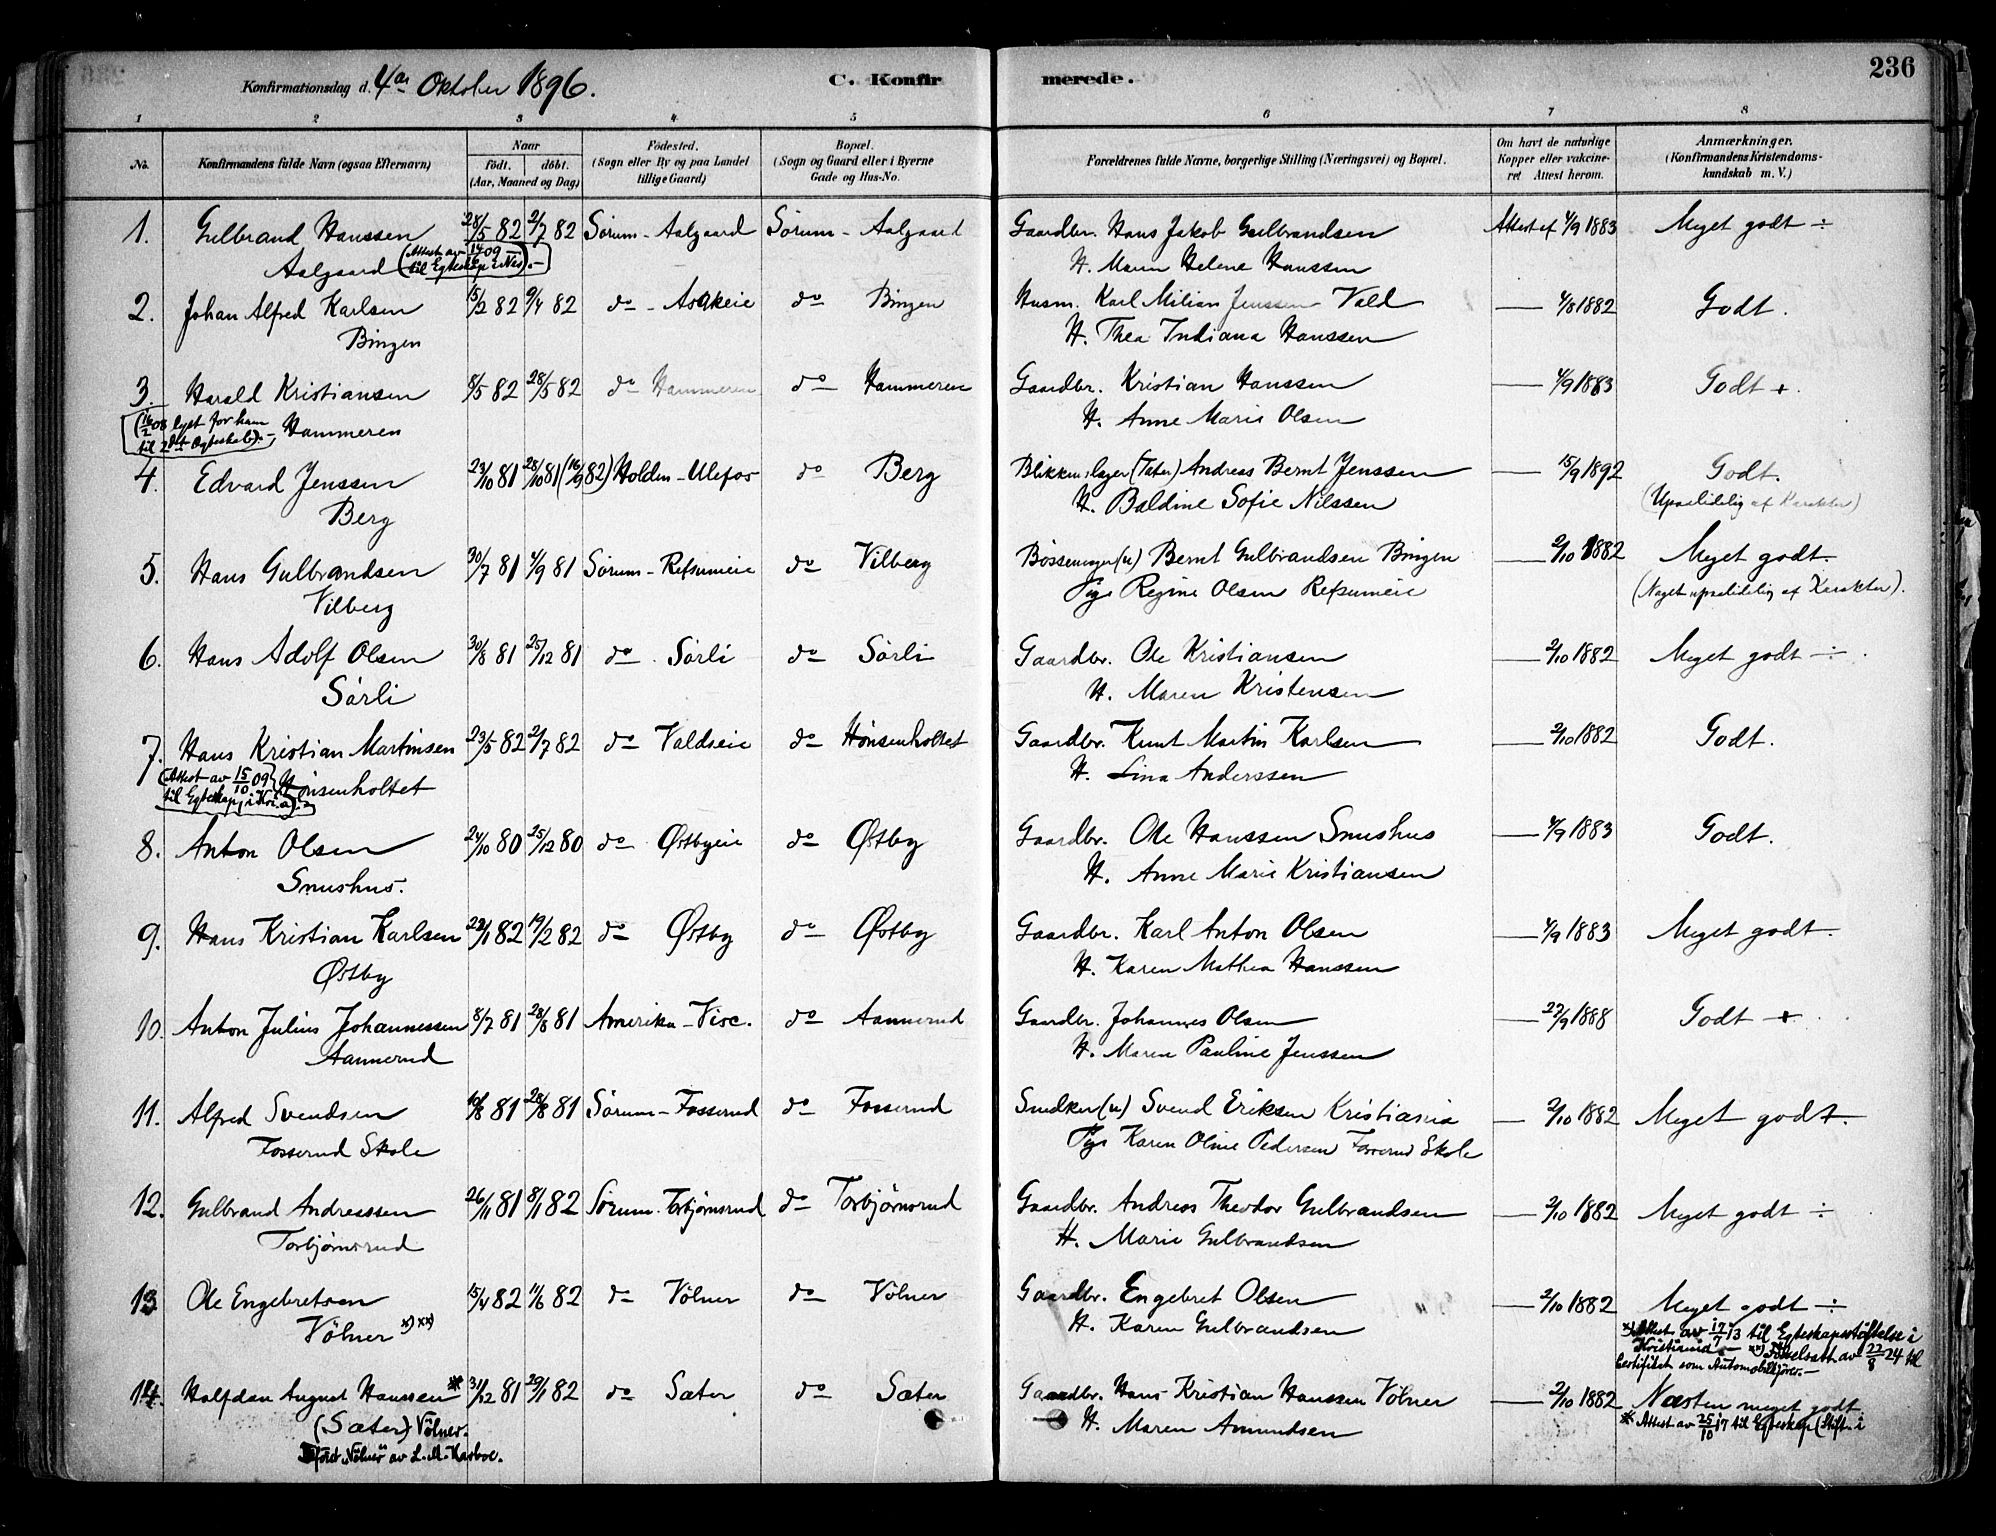 Konfirmationsdag d. 4de Oktober 1896. C. Konfirmerede. 236
1 2 3 4 5 6 7 8
No. Konfirmandens fulde Navn (ogsaa Efternavn) Naar født. døbt. (Aar, Maaned og Dag) Fødested. (Sogn eller By og paa Landet tillige Gaard) Bopæl. (Sogn og Gaard eller i Byerne Gade og Hus-No. Forældrenes fulde Navne, borgerlige Stilling (Næringsvei) og Bopæl. Om havt de naturlige Kopper eller vakcineret Attest herom. Anmærkninger. (Konfirmandens Kristendomskundskab m. V.)
1. Gulbrand Hanssen 28/5 82 2/7 82 Sørum - Aalgaard Sørum - Aalgaard Gaardbr. Hans Jakob Gulbrandsen Attest af 4/9 1883 Meget godt ÷
Aalgaard (Attest av 14/6 09 til Egteskap i Nes).- H. Maren Helene Hanssen
2. Johan Alfred Karlsen 15/2 82 9/4 82 do - Asakeie do Bingen Husm. Karl Milian Jenssen Vald — 4/8 1882 Godt.
Bingen H. Thea Indiana Hanssen
3. Harald Kristiansen 8/5 82 28/5 82 do Hammeren do Hammeren Gaardbr. Kristian Hanssen — 4/9 1883 Godt +.
(16/2 08 lyst for ham til 2det Egteskab).- Hammeren H. Anne Marie Olsen
4. Edvard Jenssen 23/10 81 28/10 81 (16/9 82) Holden - Ulefos do Berg Blikkenslager (Tater) Andreas Bernt Jenssen — 15/9 1892 Godt.
Berg H. Baldine Sofie Nilssen (Upaalidelig af Karakter)
5. Hans Gulbrandsen 30/7 81 4/9 81 Sørum - Refsumeie do Vilberg Bøssemager (u) Bernt Gulbrandsen Bingen — 2/10 1882 Meget godt.
Vilberg Pige Regine Olsen Refsumeie (Noget upaalidelig af Karakter).
6. Hans Adolf Olsen 30/8 81 25/12 81 do Sørli do Sørli Gaardbr. Ole Kristiansen — 2/10 1882 Meget godt ÷
Sørli H. Maren Kristensen
7. Hans Kristian Martinsen 23/5 82 2/7 82 do Valdseie do Hønsenholtet Gaardbr. Knut Martin Karlsen — 2/10 1882 Godt.
(Attest av 15/10 09 til Egteskap i Kr.a). Hønsenholtet H. Lina Anderssen
8. Anton Olsen 24/10 80 25/12 80 do Østbyeie do Østby Gaardbr. Ole Hanssen Snushus — 4/9 1883 Godt.
Snushus. H. Anne Marie Kristiansen
9. Hans Kristian Karlsen 22/1 82 19/2 82 do Østby do Østby Gaardbr. Karl Anton Olsen — 4/9 1883 Meget godt.
Østby H. Karen Mathea Hanssen
10. Anton Julius Johannessen 8/7 81 28/8 81 Amerika - Visc. do Aannerud Gaardbr. Johannes Olsen — 22/9 1888 Godt +
Aannerud H. Maren Pauline Jenssen
11. Alfred Svendsen 10/8 81 28/8 81 Sørum - Fosserud do Fosserud Snedker (u) Svend Eriksen Kristiania — 2/10 1882 Meget godt.
Fosserud Skole Pige Karen Oline Pedersen Fosserud Skole
12. Gulbrand Andreassen 26/11 81 8/1 82 Sørum - Torbjørnsrud do Torbjørnsrud Gaardbr. Andreas Theodor Gulbrandsen — 2/10 1882 Meget godt ÷
Torbjørnsrud H. Marie Gulbrandsen
13. Ole Engebretsen 15/4 82 11/6 82 do Vølner do Vølner Gaardbr. Engebret Olsen — 2/10 1882 Meget godt ÷
Vølner x) xx) H. Karen Gulbrandsen x) Attest av 17/7 13 til Egteskapsstiftelse i Kristiania — xx) av 22/8 24 til Certifikat som Automobilfører.-
14. Halfdan August Hanssen * 31/12 81 29/1 82 do Sæter do Sæter Gaardbr. Hans Kristian Hanssen Vølner — 2/10 1882 Næsten meget godt
(Sæter) Vølner. H. Maren Amundsen * Attest av 25/10 17 til Egteskap (Stift. i
"Vølner" av L. M.